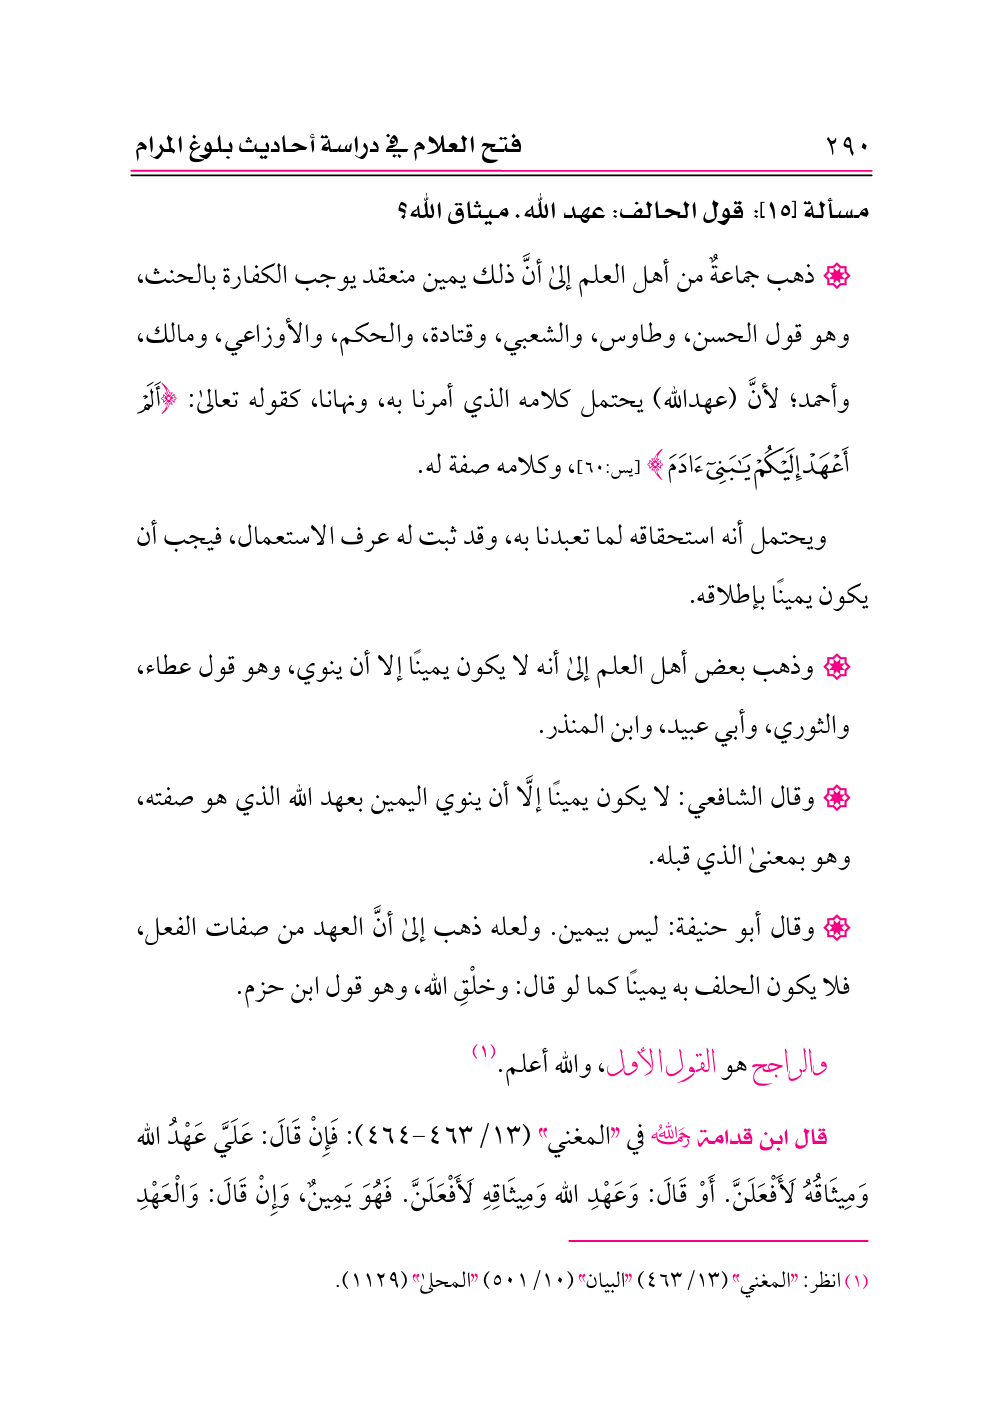 ٢٩٠ فتح العلام في دراسة أحاديث بلوغ المرام
مسألة [١٥]: قول الحالف: عهد الله. ميثاق الله؟
ذهب جماعةٌ من أهل العلم إلىٰ أنَّ ذلك يمين منعقد يوجب الكفارة بالحنث،
وهو قول الحسن، وطاوس، والشعبي، وقتادة، والحكم، والأوزاعي، ومالك،
وأحمد؛ لأنَّ (عهدالله) يحتمل كلامه الذي أمرنا به، ونهانا، كقوله تعالىٰ: ﴿أَلَمۡ
أَعۡهَدۡ إِلَيۡكُمۡ يَٰبَنِيٓ ءَادَمَ﴾ [يس:٦٠]، وكلامه صفة له.
ويحتمل أنه استحقاقه لما تعبدنا به، وقد ثبت له عرف الاستعمال، فيجب أن
يكون يمينًا بإطلاقه.
وذهب بعض أهل العلم إلىٰ أنه لا يكون يمينًا إلا أن ينوي، وهو قول عطاء،
والثوري، وأبي عبيد، وابن المنذر.
وقال الشافعي: لا يكون يمينًا إلَّا أن ينوي اليمين بعهد الله الذي هو صفته،
وهو بمعنىٰ الذي قبله.
وقال أبو حنيفة: ليس بيمين. ولعله ذهب إلىٰ أنَّ العهد من صفات الفعل،
فلا يكون الحلف به يمينًا كما لو قال: وخلْقِ الله، وهو قول ابن حزم.
والراجح هو القول الأول، والله أعلم.(١)
قال ابن قدامة رحمه الله في "المغني" (١٣/ ٤٦٣-٤٦٤): فَإِنْ قَالَ: عَلَيَّ عَهْدُ الله
وَمِيثَاقُهُ لَأَفْعَلَنَّ. أَوْ قَالَ: وَعَهْدِ الله وَمِيثَاقِهِ لَأَفْعَلَنَّ. فَهُوَ يَمِينٌ، وَإِنْ قَالَ: وَالْعَهْدِ
(١) انظر: "المغني" (١٣/ ٤٦٣) "البيان" (١٠/ ٥٠١) "المحلىٰ" (١١٢٩).